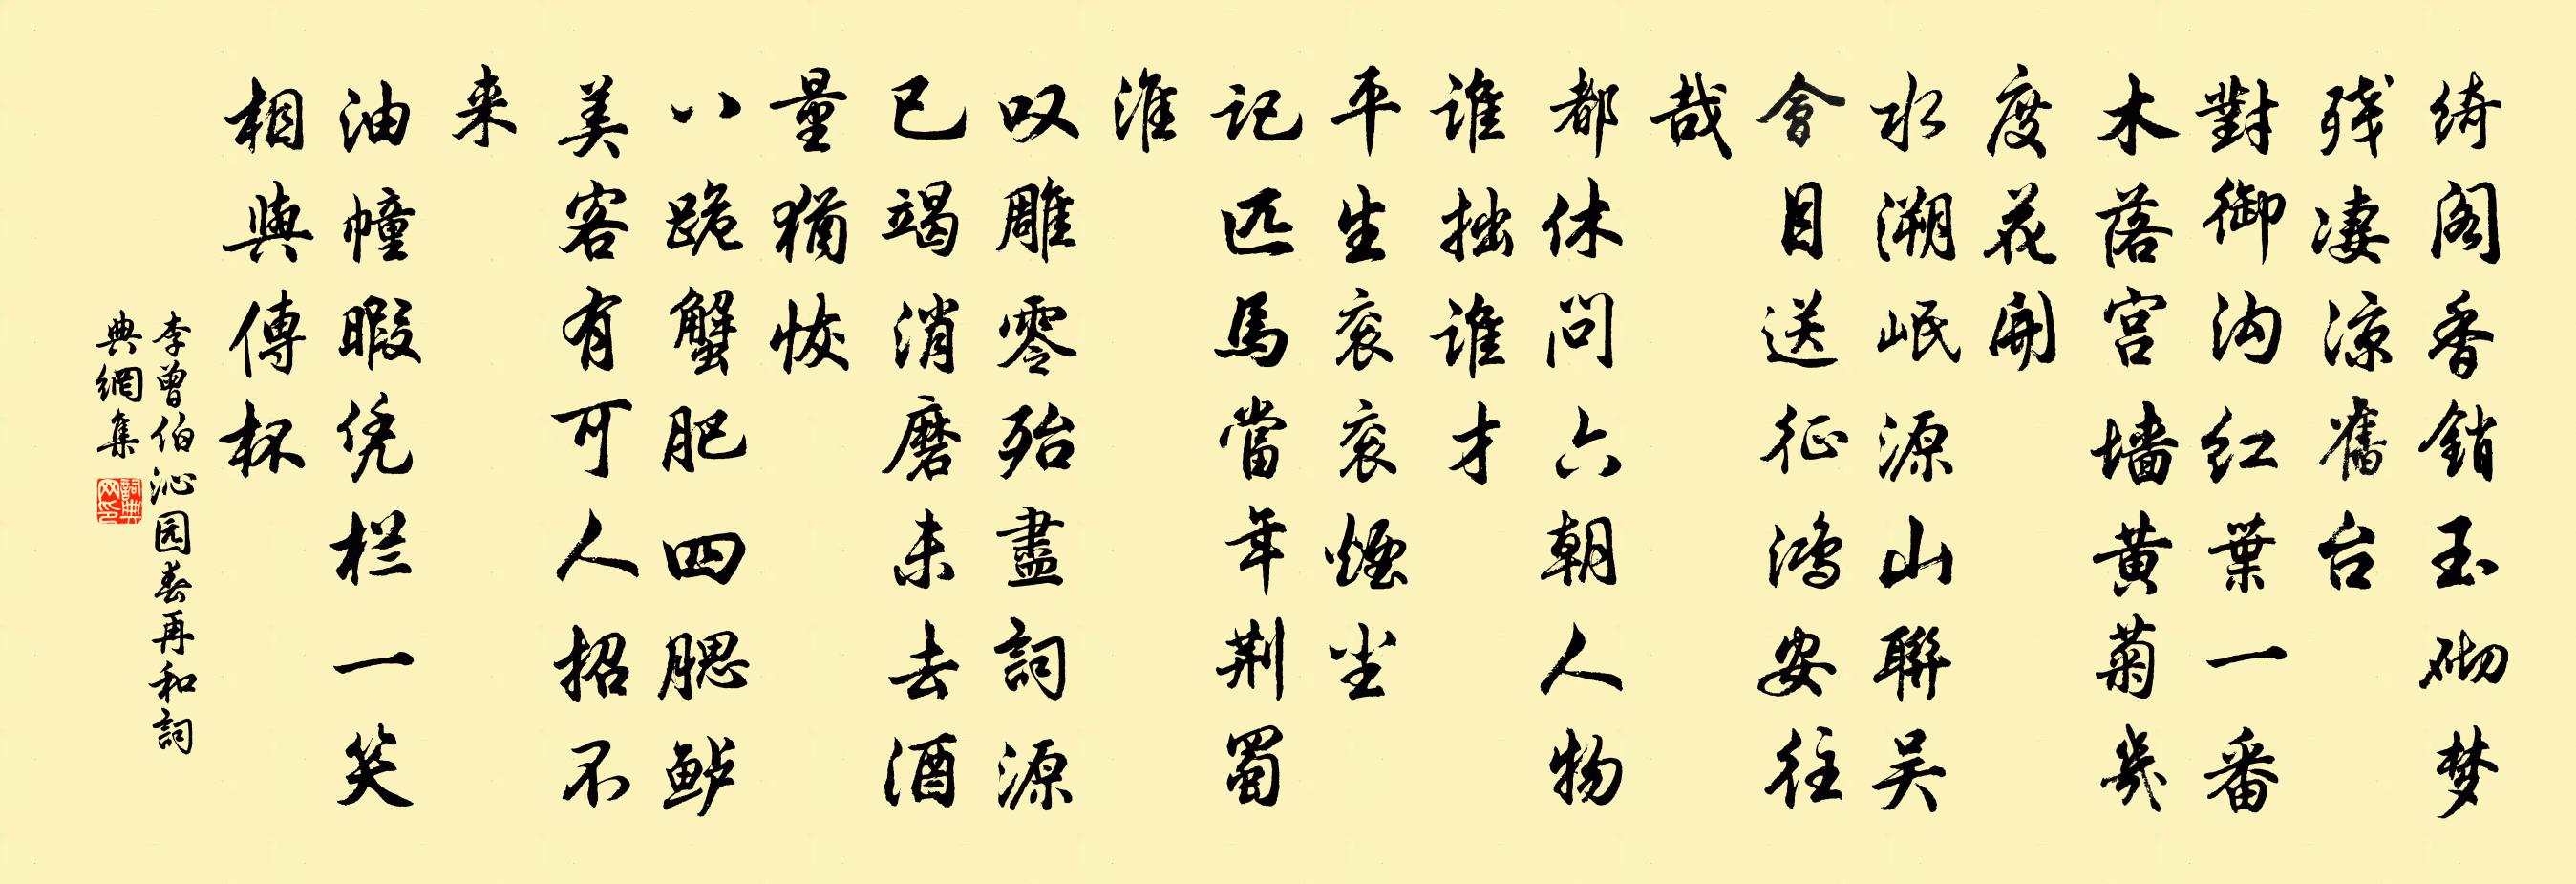 绮阁香銷玉砌梦
残凄凉舊台
對御沟红葉一番
木落宫墙黄菊幾
度花開
水溯岷源山聯吴
會目送征鸿安往
哉
都休问六朝人物
谁拙谁才
平生衮衮烟尘
记匹馬當年荆蜀
淮
叹雕零殆盡詞源
已竭消磨未去酒
量猶恢
八跪蟹肥四腮鲈
美客有可人招不
来
油幢暇凭栏一笑
相與傳杯
李曾伯沁园春再和詞
典網集
詞典
网印